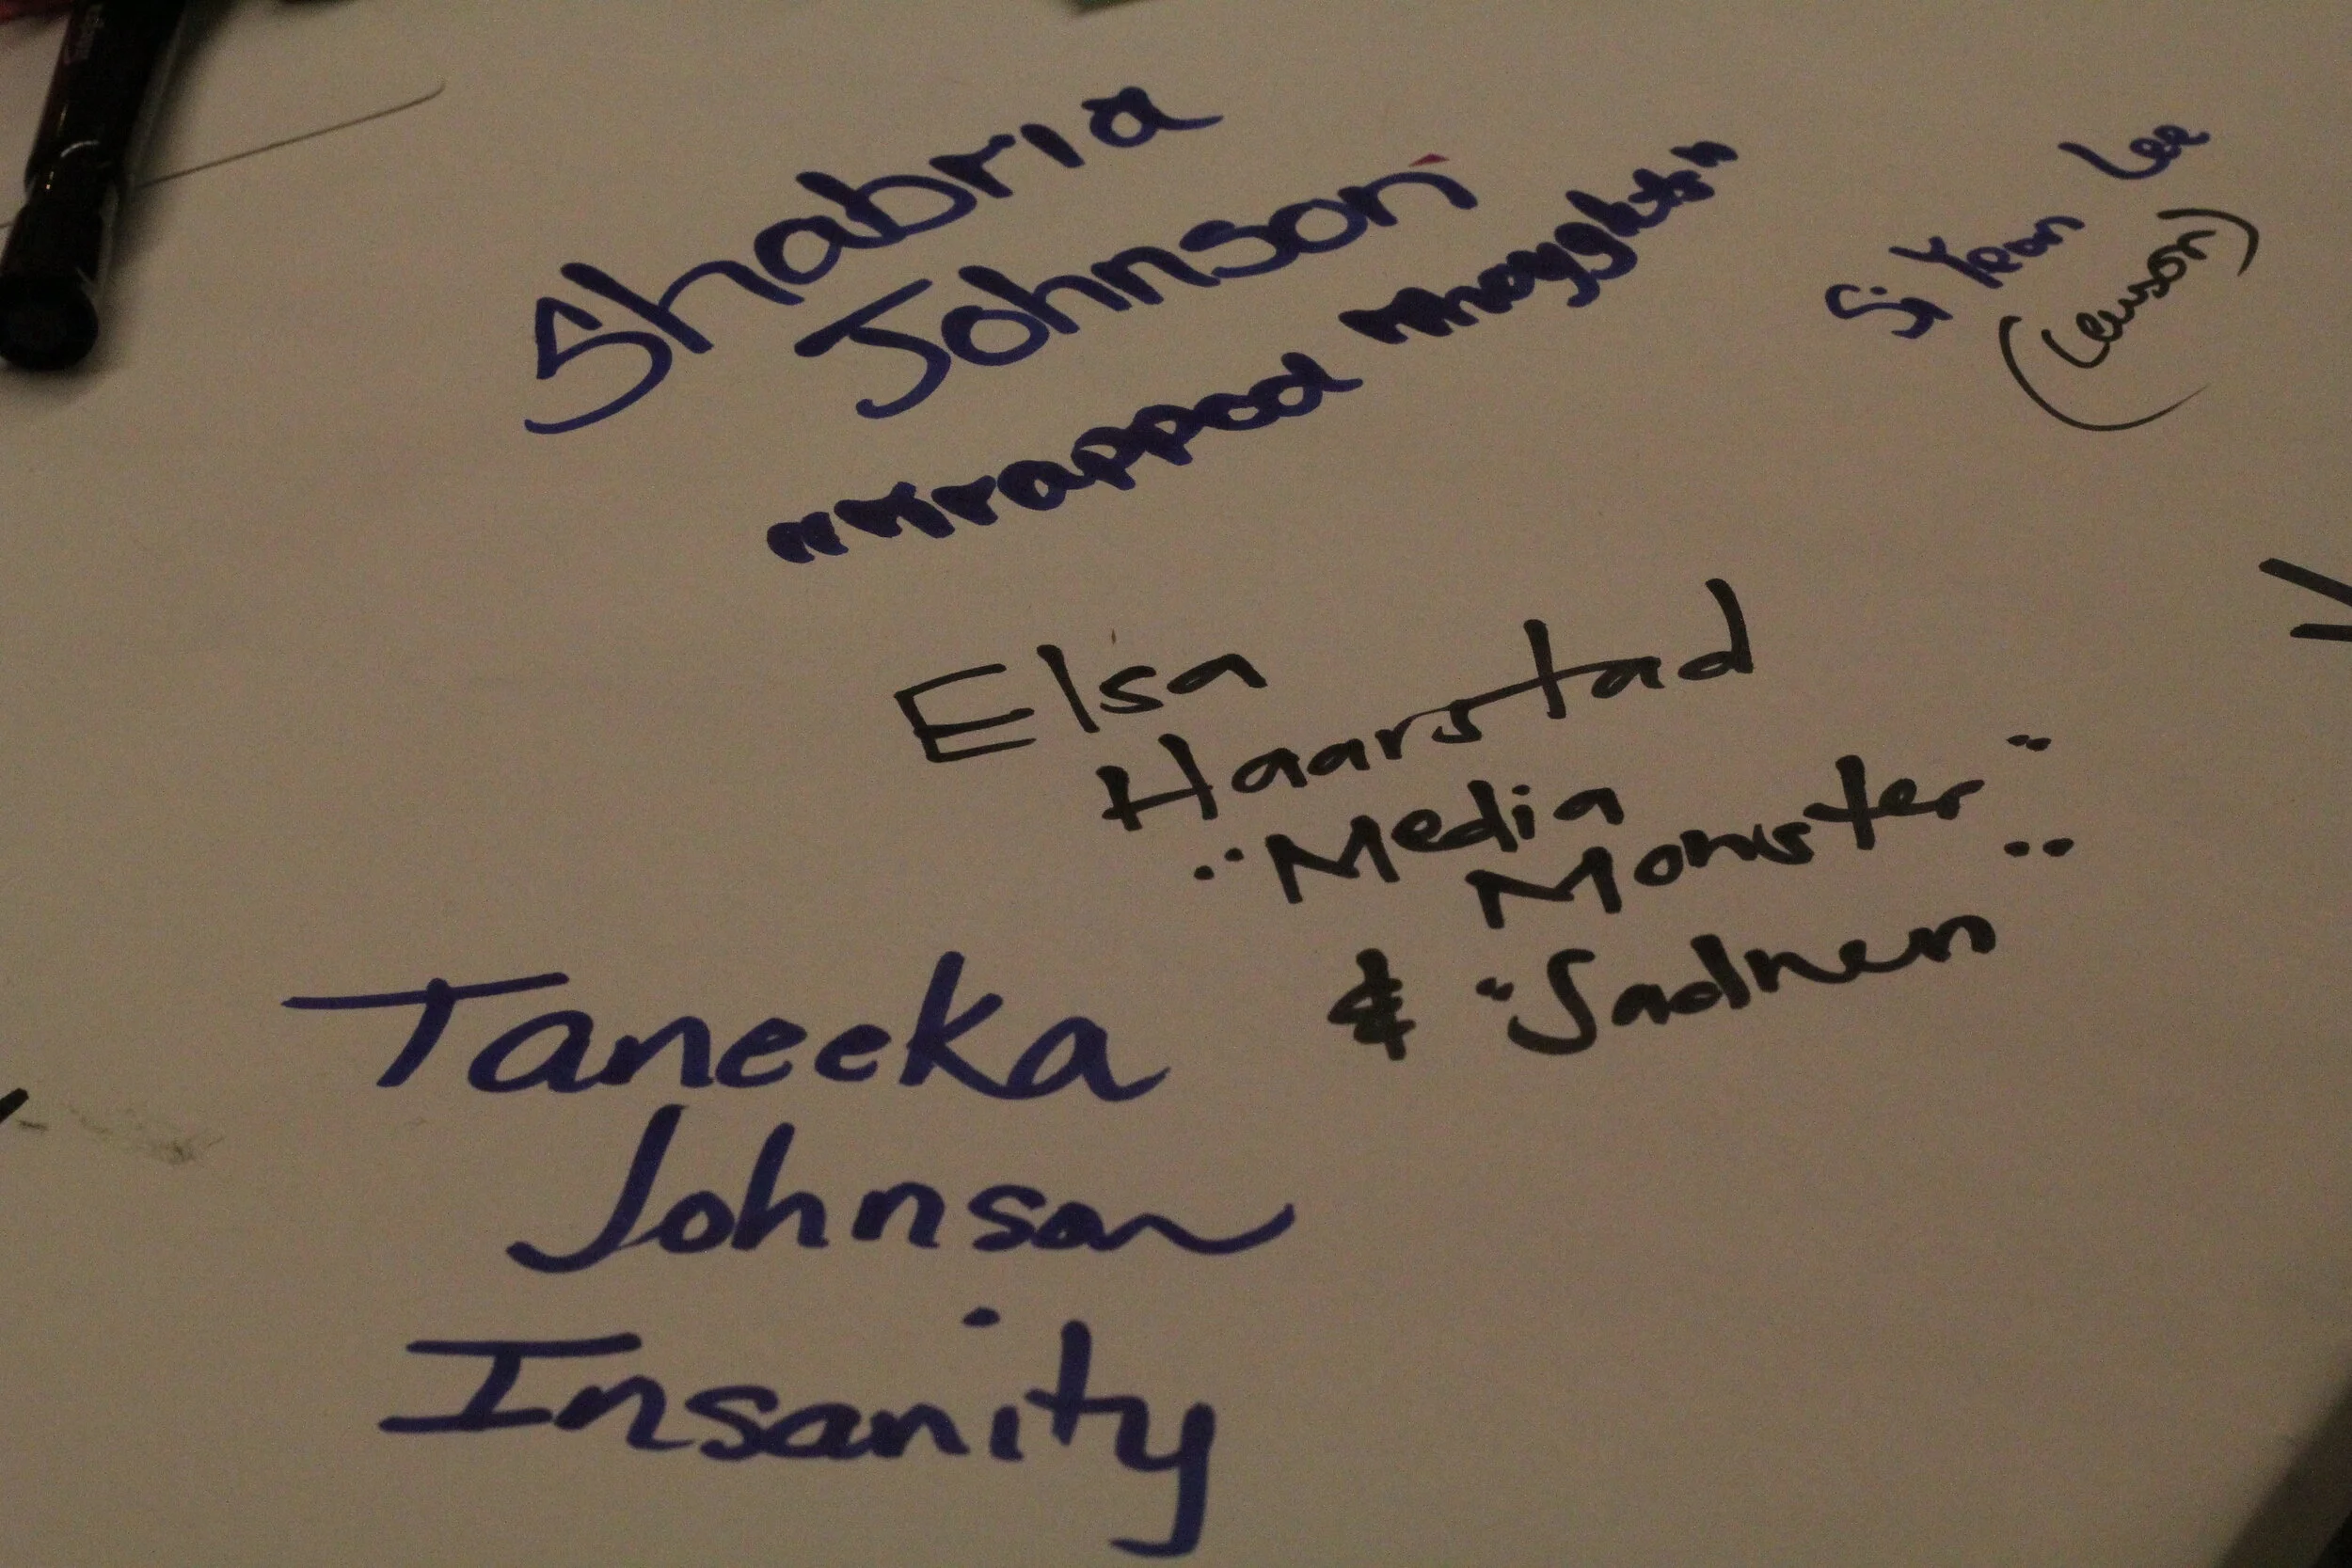 Shabria
Johnson
"Wrapped thoughts"
Si Yeon Lee
Elsa
Haarstad
"Media
Monster"
& "Sadness"
Taneeka
Johnson
Insanity